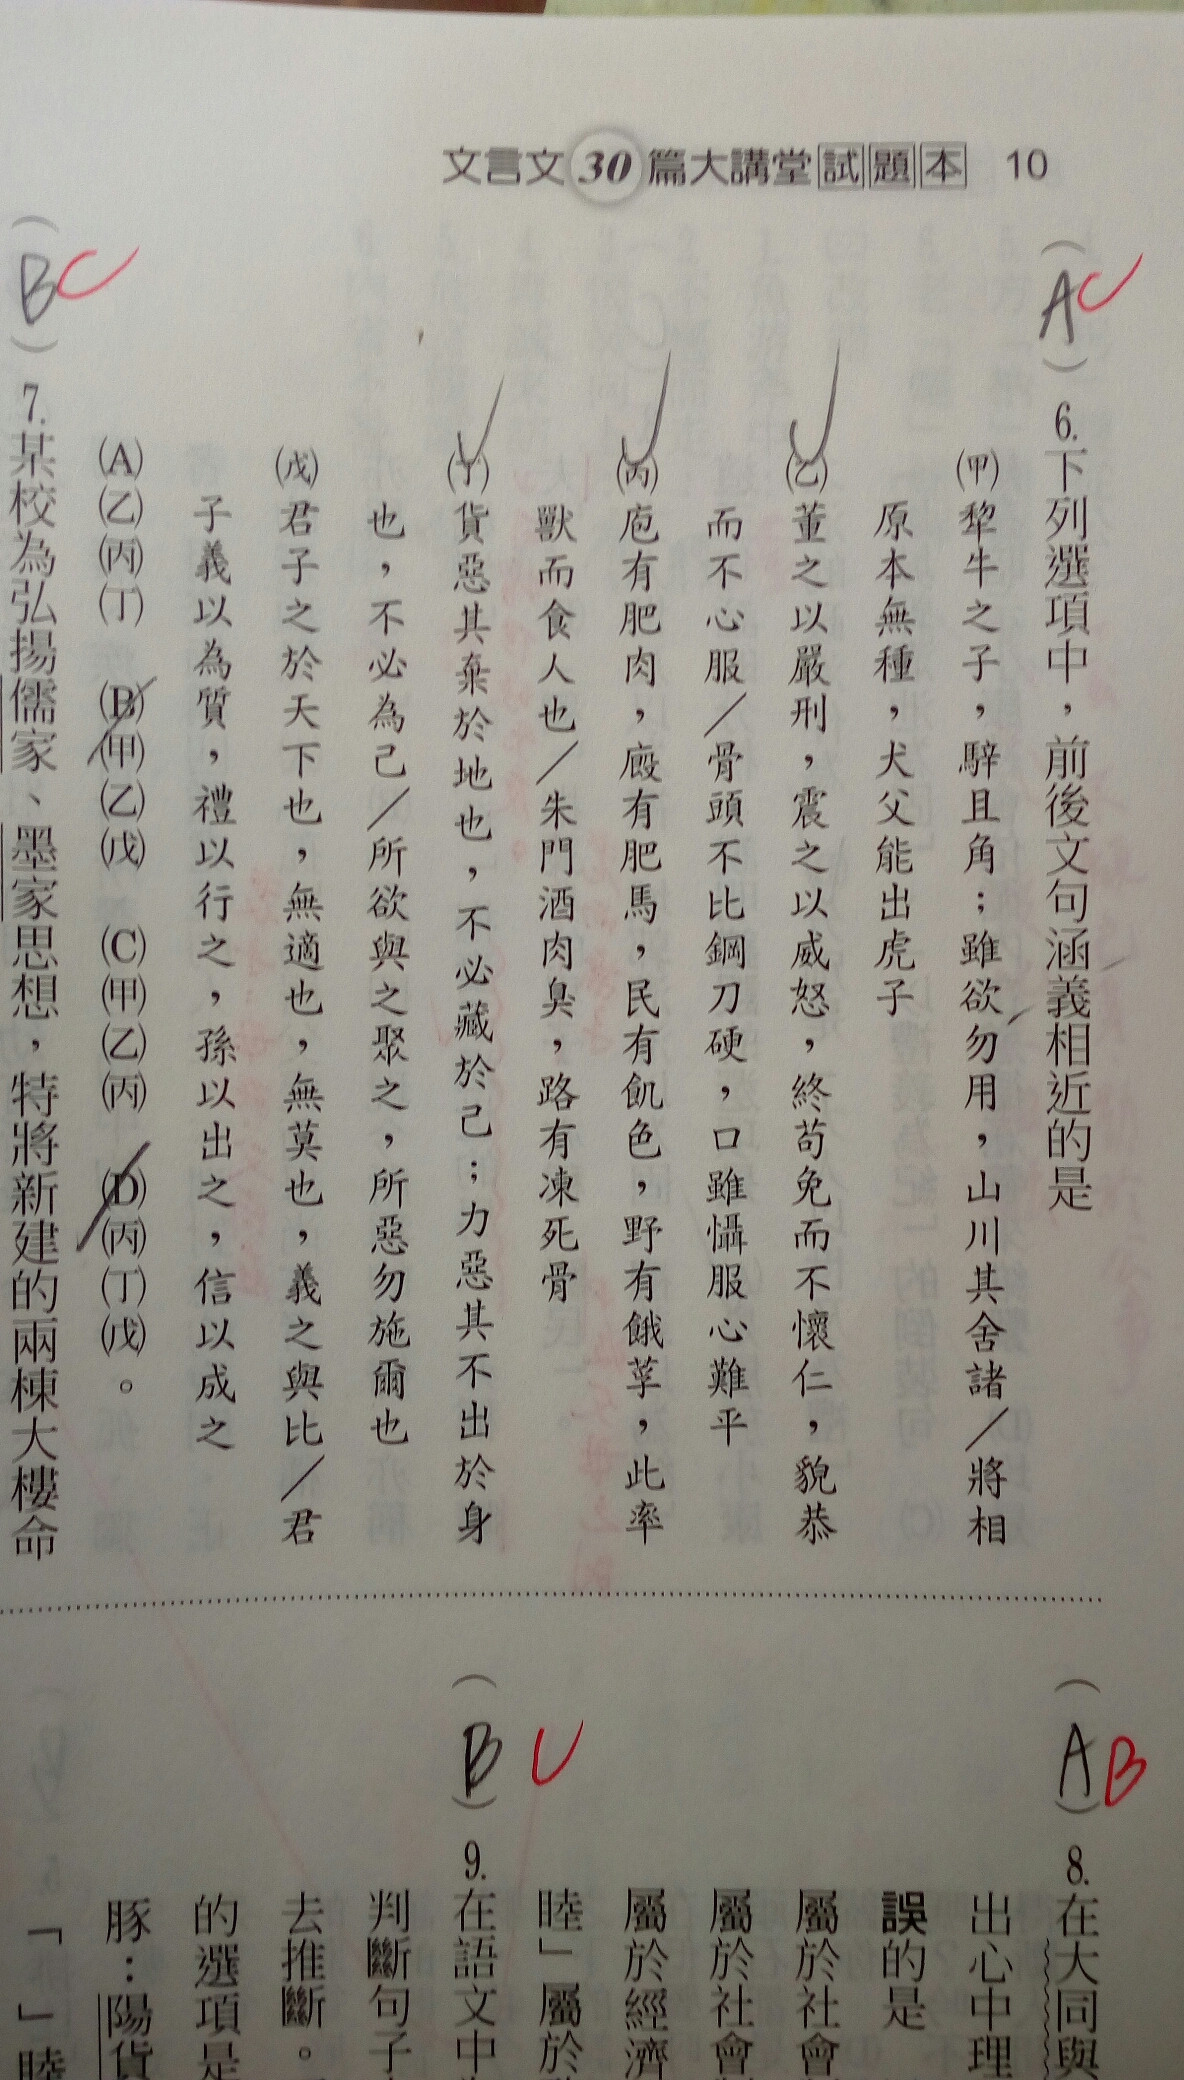 文言文30篇大講堂試題本 10
(AC)6.下列選項中，前後文句涵義相近的是
(甲)犂牛之子，騂且角；雖欲勿用，山川其舍諸／將相
原本無種，犬父能出虎子
(乙)董之以嚴刑，震之以威怒，終苟免而不懷仁，貌恭
而不心服／骨頭不比鋼刀硬，口雖懾服心難平
(丙)庖有肥肉，廄有肥馬，民有飢色，野有餓莩，此率
獸而食人也／朱門酒肉臭，路有凍死骨
(丁)貨惡其棄於地也，不必藏於己；力惡其不出於身
也，不必為己／所欲與之聚之，所惡勿施爾也
(戊)君子之於天下也，無適也，無莫也，義之與比／君
子義以為質，禮以行之，孫以出之，信以成之
(A)(乙)(丙)(丁) (B)(甲)(乙)(戊) (C)(甲)(乙)(丙) (D)(丙)(丁)(戊)。
(BC)7.某校為弘揚儒家、墨家思想，特將新建的兩棟大樓命
(AB)8.在大同與
出心中理
誤的是
屬於社會
屬於社會
屬於經濟
睦」屬於
(BC)9.在語文中
判斷句子
去推斷。
的選項是
豚：陽貨
「」睦